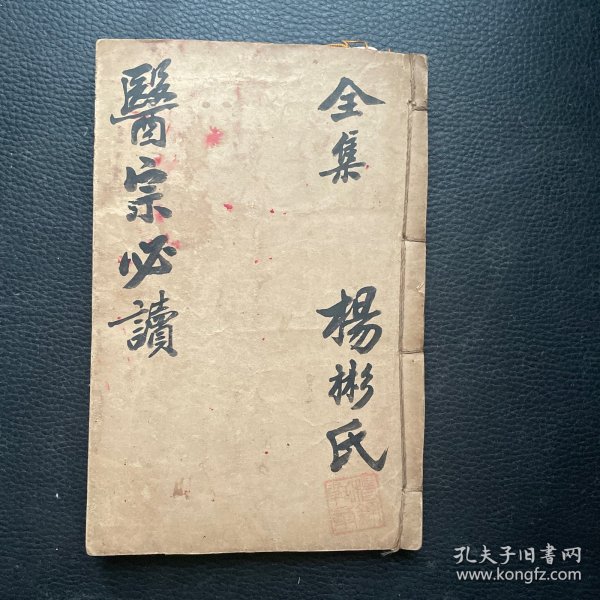 全集
楊彬氏
醫宗必讀
孔夫子旧書网
www.kongfz.com